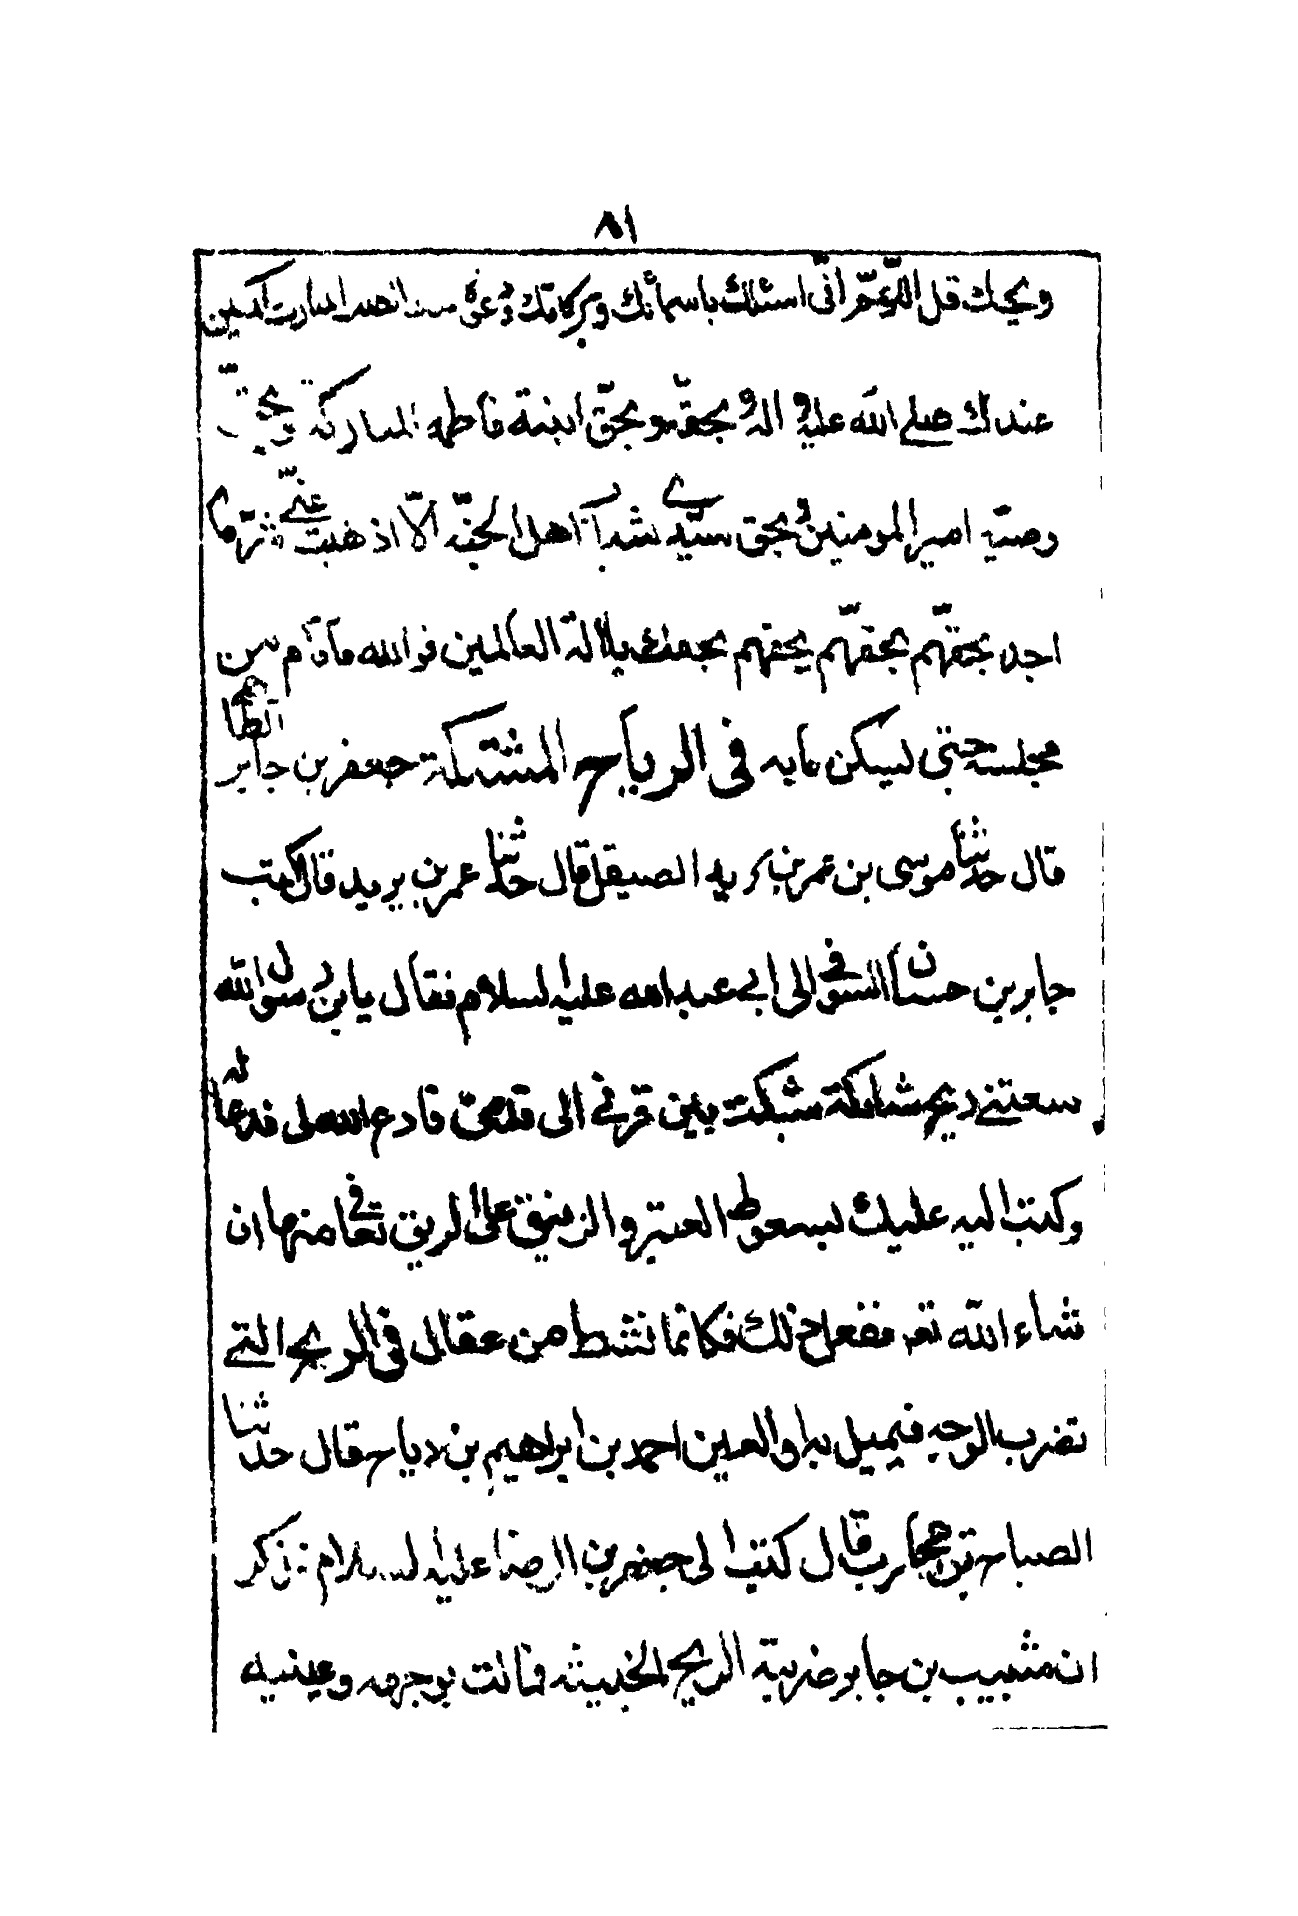 ٨١
ويحك قل اللهم اني اسئلك باسمائك وبركاتك ودعوة المبارك المكين
عندك صلى الله عليه واله وبحقه وبحق ابنته فاطمه المباركة وبحق
وصيه امير المومنين وبحق سيدي شباب اهل الجنه الا اذهبت عني شر ما
اجد بحقهم بحقهم بحقهم بحقك يا اله العالمين فوالله ما قام من
مجلسه حتى سكن مابه في الرياح المشتبكة جعفر بن جابر الطائي
قال حدثنا موسى بن عمر بن يزيد الصيقل قال حدثنا عمر بن يزيد قال كتب
جابر بن حسان الصوفي الى ابي عبد الله عليه السلام فقال يابن رسول الله
منعتني ريح شابكة شبكت بين قرني الى قدمي فادع الله لي فدعا له
وكتب اليه عليك بسعوط العنبر والزنبق على الريق تعافى منها ان
شاء الله تعر ففعل ذلك فكانما نشط من عقال في الريح التي
تضرب الوجه فيميل به او العين احمد بن ابراهيم بن رياح قال حدثنا
الصباح بن محارب قال كنت الى جعفر بن الرضا عليه السلام فذكر
ان شبيب بن جابر ضربته الريح الخبيثه فمالت بوجهه وعينيه